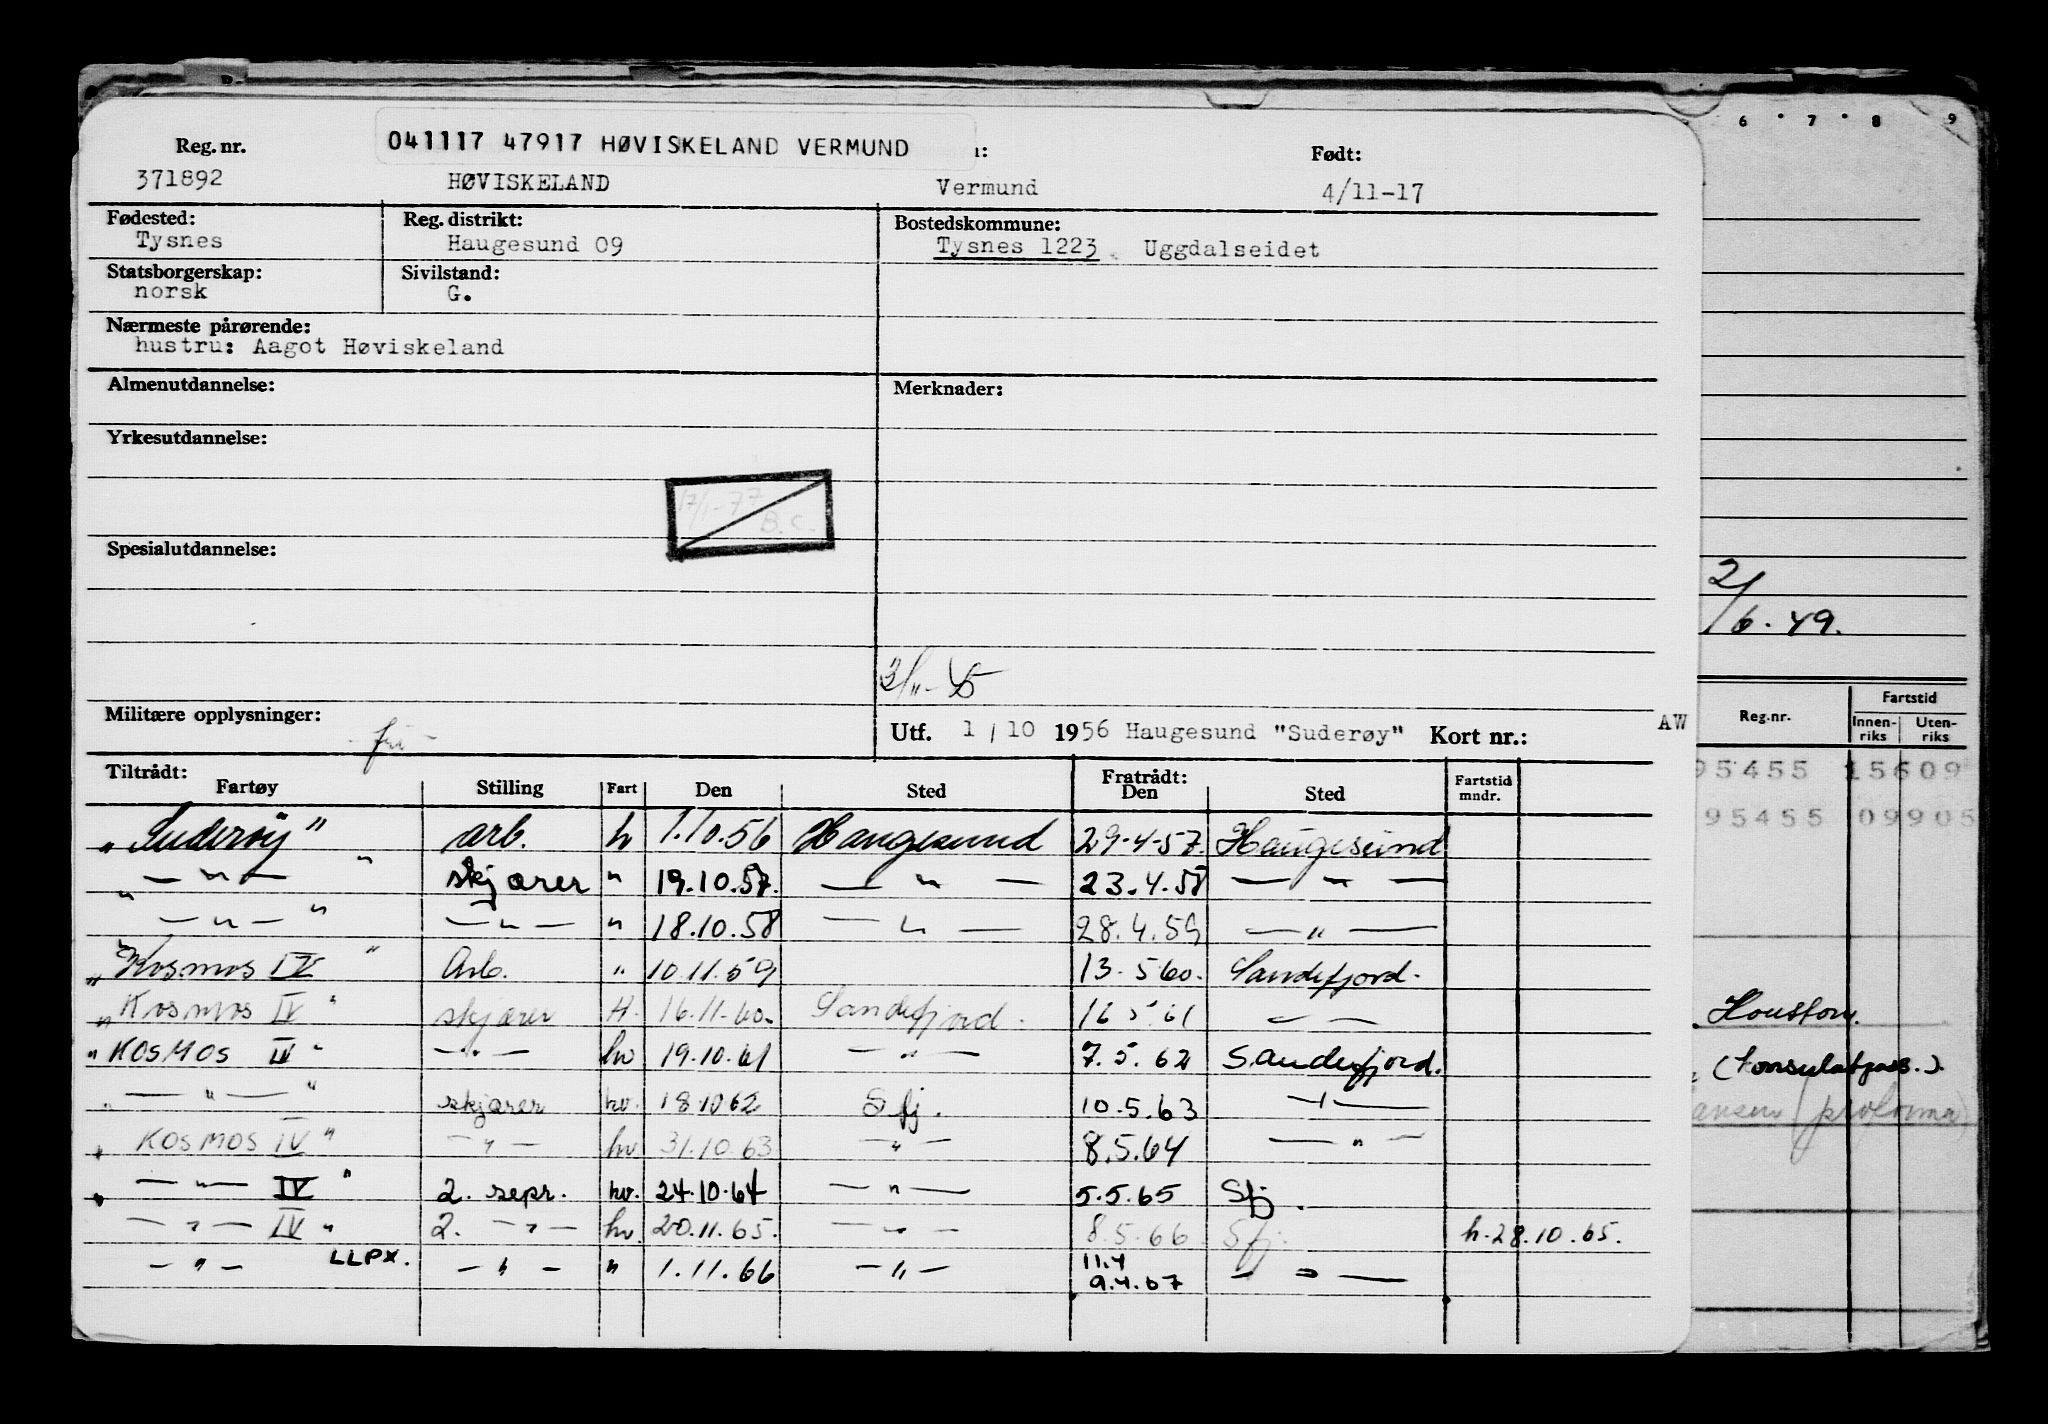 041117 47917 HØVISKELAND VERMUND
Reg. nr. Født:
371892 HØVISKELAND Vermund 4/11-17
Fødested: Reg. distrikt: Bostedskommune:
Tysnes Haugesund 09 Tysnes 1223 Uggdalseidet
Statsborgerskap: Sivilstand:
norsk G.
Nærmeste pårørende:
hustru: Aagot Høviskeland
Almenutdannelse: Merknader:
Yrkesutdannelse:
17/1-77 B.C.
Spesialutdannelse:
Militære opplysninger: fri
Utf. 1/10 1956 Haugesund "Suderøy" Kort nr.: AW
Tiltrådt: Fratrådt: Fartstid
Fartøy Stilling Fart Den Sted Den Sted mndr.
"Suderøy" arb. h 1.10.56 Haugesund 29.4.57. Haugesund
" — " — " skjærer " 19.10.57. — " — 23.4.58 — " —
— " — " — " — " 18.10.58 — " — 28.4.59 — " —
"Kosmos IV" Arb. " 10.11.59 13.5.60. Sandefjord.
"Kosmos IV" skjærer H. 16.11.60. Sandefjord. 16.5.61 — " —
"KOSMOS IV" — " — hv 19.10.61 — " — 7.5.62 Sandefjord.
" — " — " skjærer hv. 18.10.62 Sfj. 10.5.63 — " —
" KOSMOS IV" — " — hv 31.10.63 — " — 8.5.64 — " —
" — " — IV " 2. sepr. hv. 24.10.64 — " — 5.5.65 Sfj.
— " — IV " 2. — " — hv. 20.11.65. — " — 8.5.66 Sfj. h.28.10.65.
— " — LLPX. — " — " 1.11.66 — " — 11.4 9.4.67 — " —
6 7 8 9
2/6.49.
Reg.nr. Fartstid
Innen-riks Uten-riks
95455 15609
95455 09905
Houston.
(Konsulatpass.).
ansen (proforma)